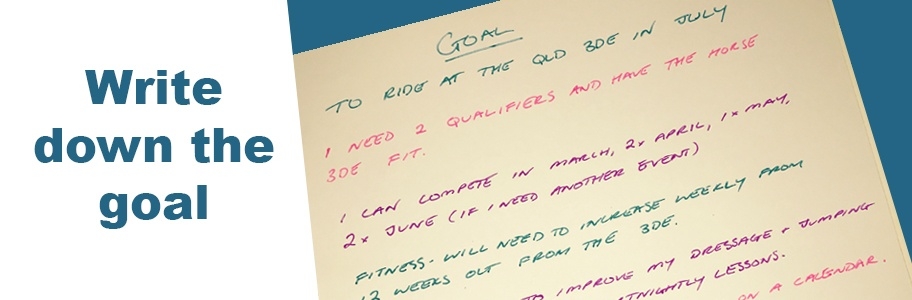 Write
down the
goal
GOAL
TO RIDE AT THE QLD 3DE IN JULY
I NEED 2 QUALIFIERS AND HAVE THE HORSE
3DE FIT.
I CAN COMPETE IN MARCH, 2x APRIL, 1x MAY,
2x JUNE (IF I NEED ANOTHER EVENT)
FITNESS - WILL NEED TO INCREASE WEEKLY FROM
12 WEEKS OUT FROM THE 3DE.
TO IMPROVE MY DRESSAGE + JUMPING
LESSONS.
ON A CALENDAR.